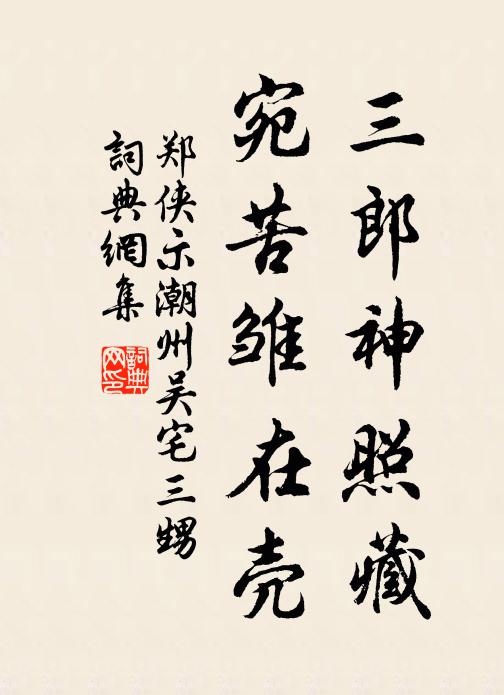 三郎神照藏
宛苦雏在壳
郑侠示潮州吴宅三甥
詞典網集
詞典网印